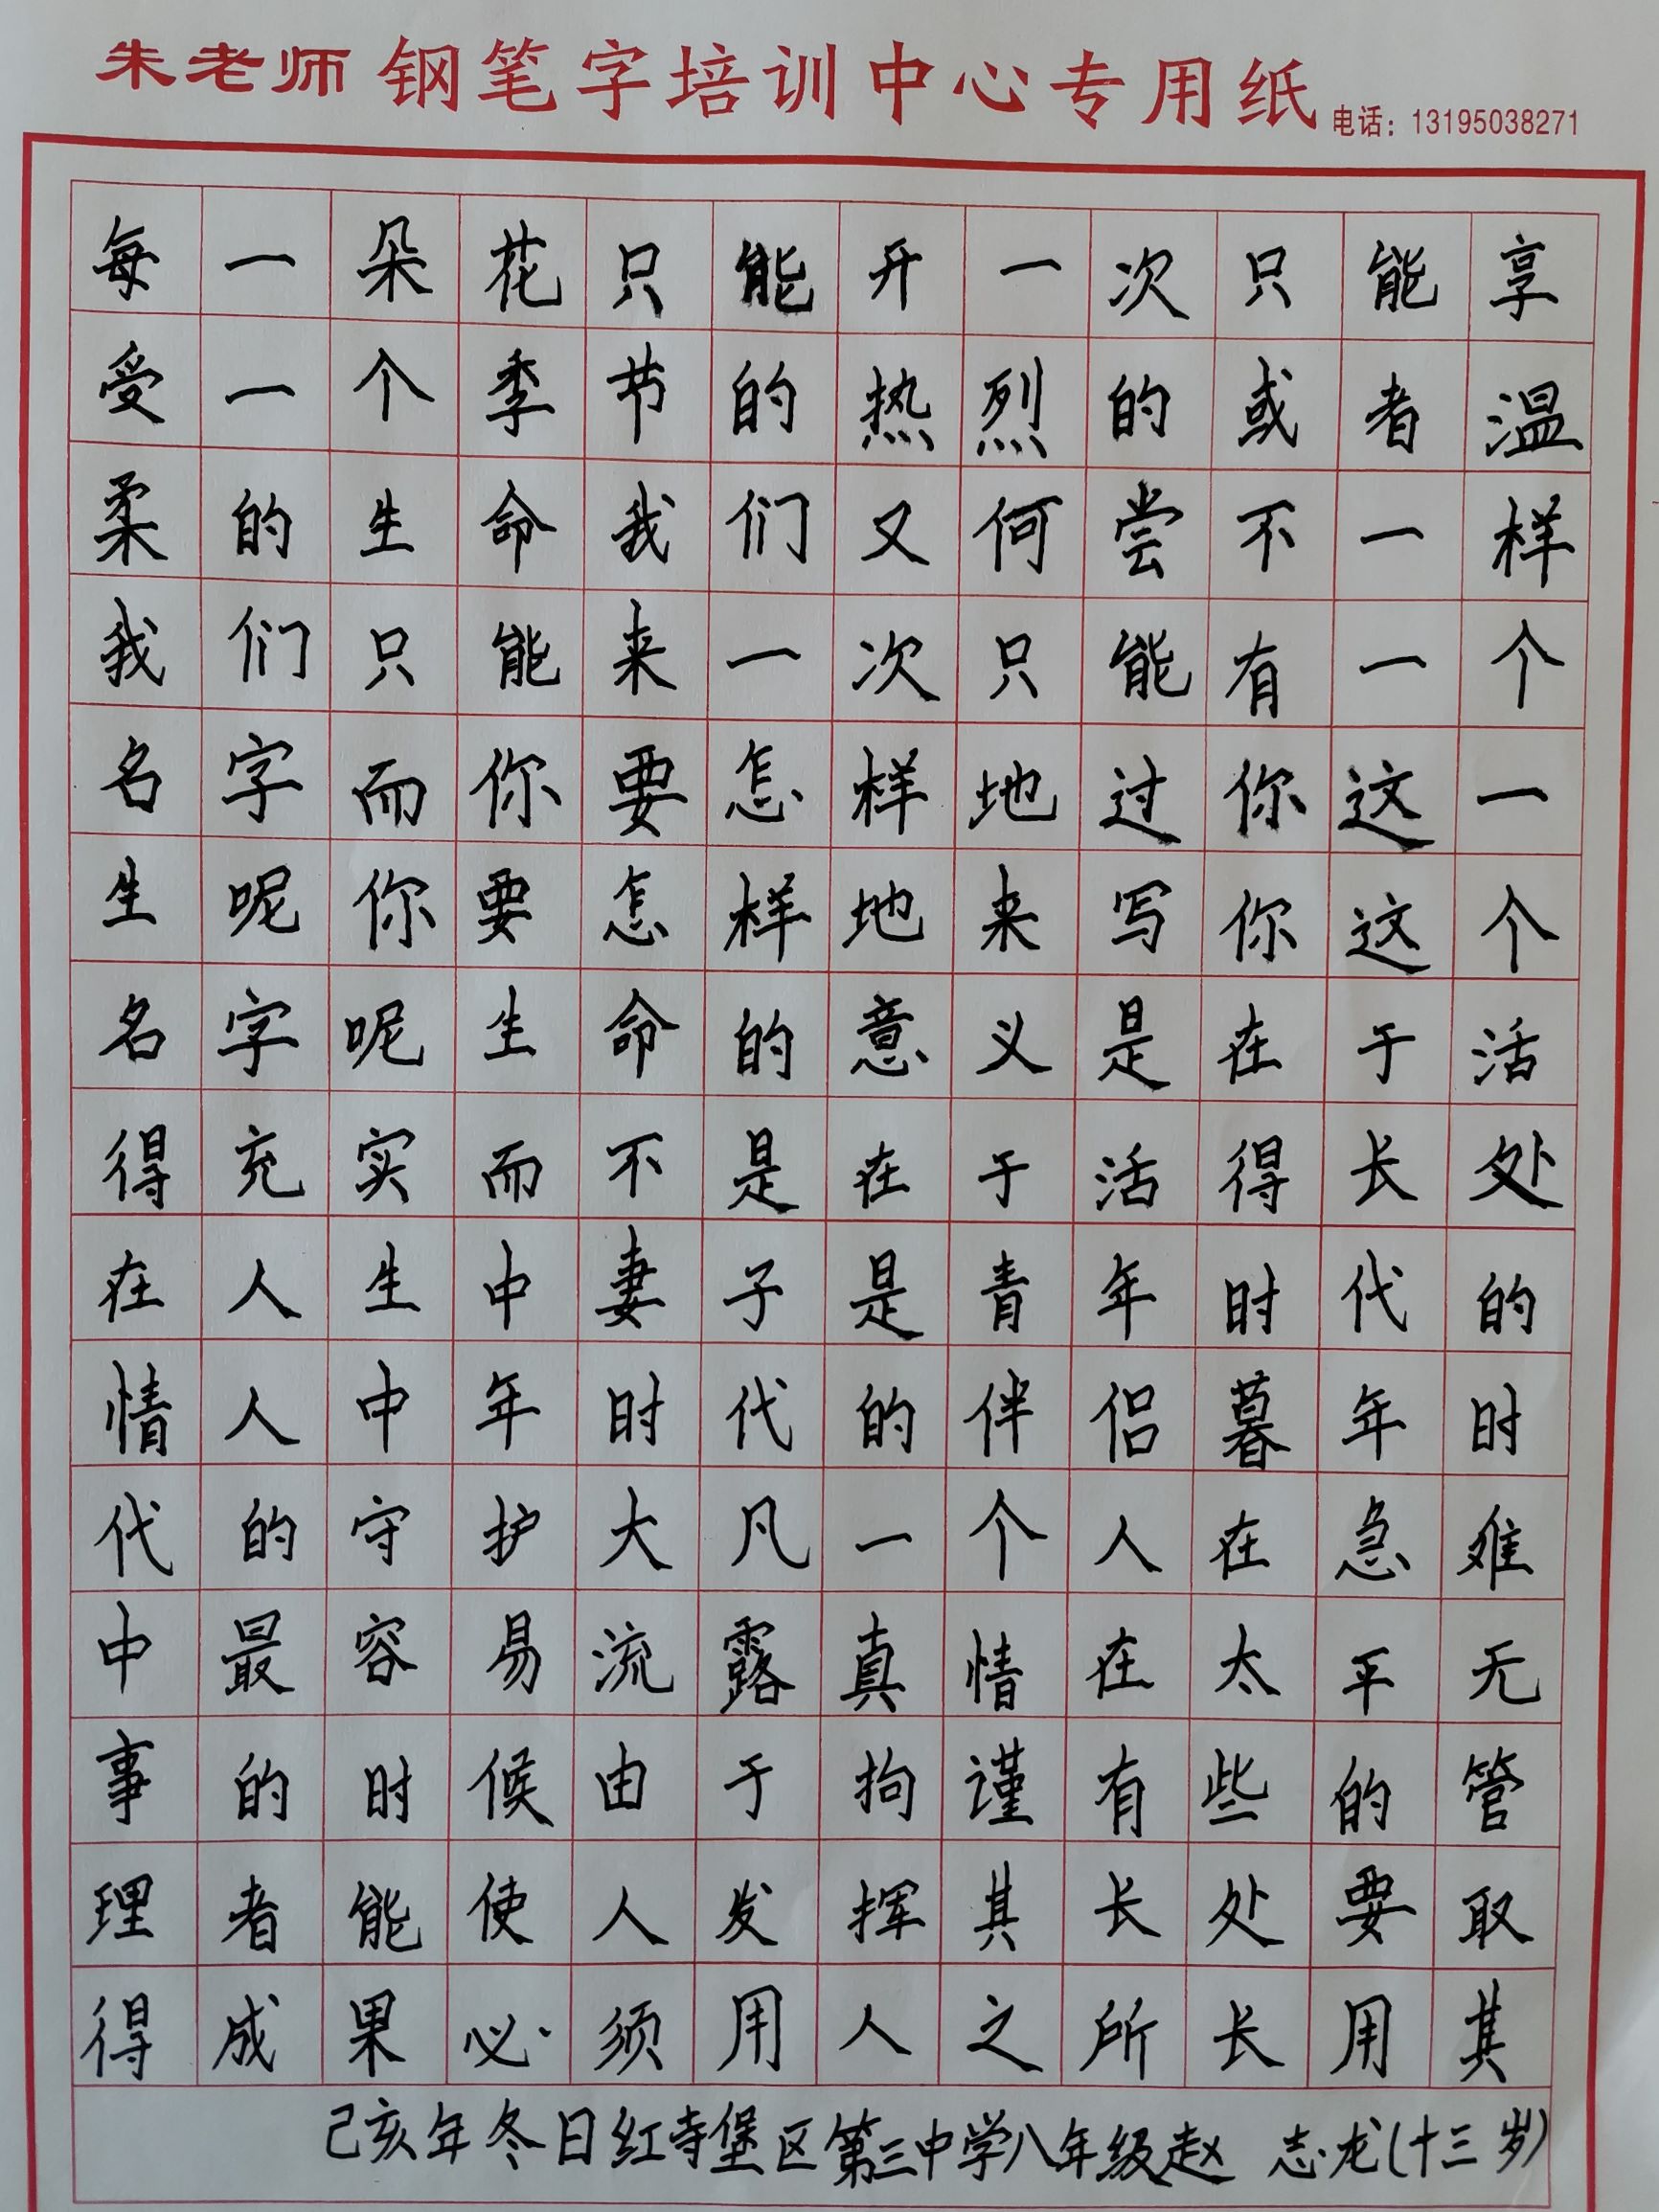 朱老师 钢笔字培训中心专用纸 电话：13195038271
每一朵花只能开一次只能享
受一个季节的热烈的或者温
柔的生命我们又何尝不一样
我们只能来一次只能有一个
名字而你要怎样地过你这一
生呢你要怎样地来写你这个
名字呢生命的意义是在于活
得充实而不是在于活得长处
在人生中妻子是青年时代的
情人中年时代的伴侣暮年时
代的守护大凡一个人在急难
中最容易流露真情在太平无
事的时候由于拘谨有些的管
理者能使人发挥其长处要取
得成果必须用人之所长用其
己亥年冬日红寺堡区第三中学八年级赵 志龙(十三岁)